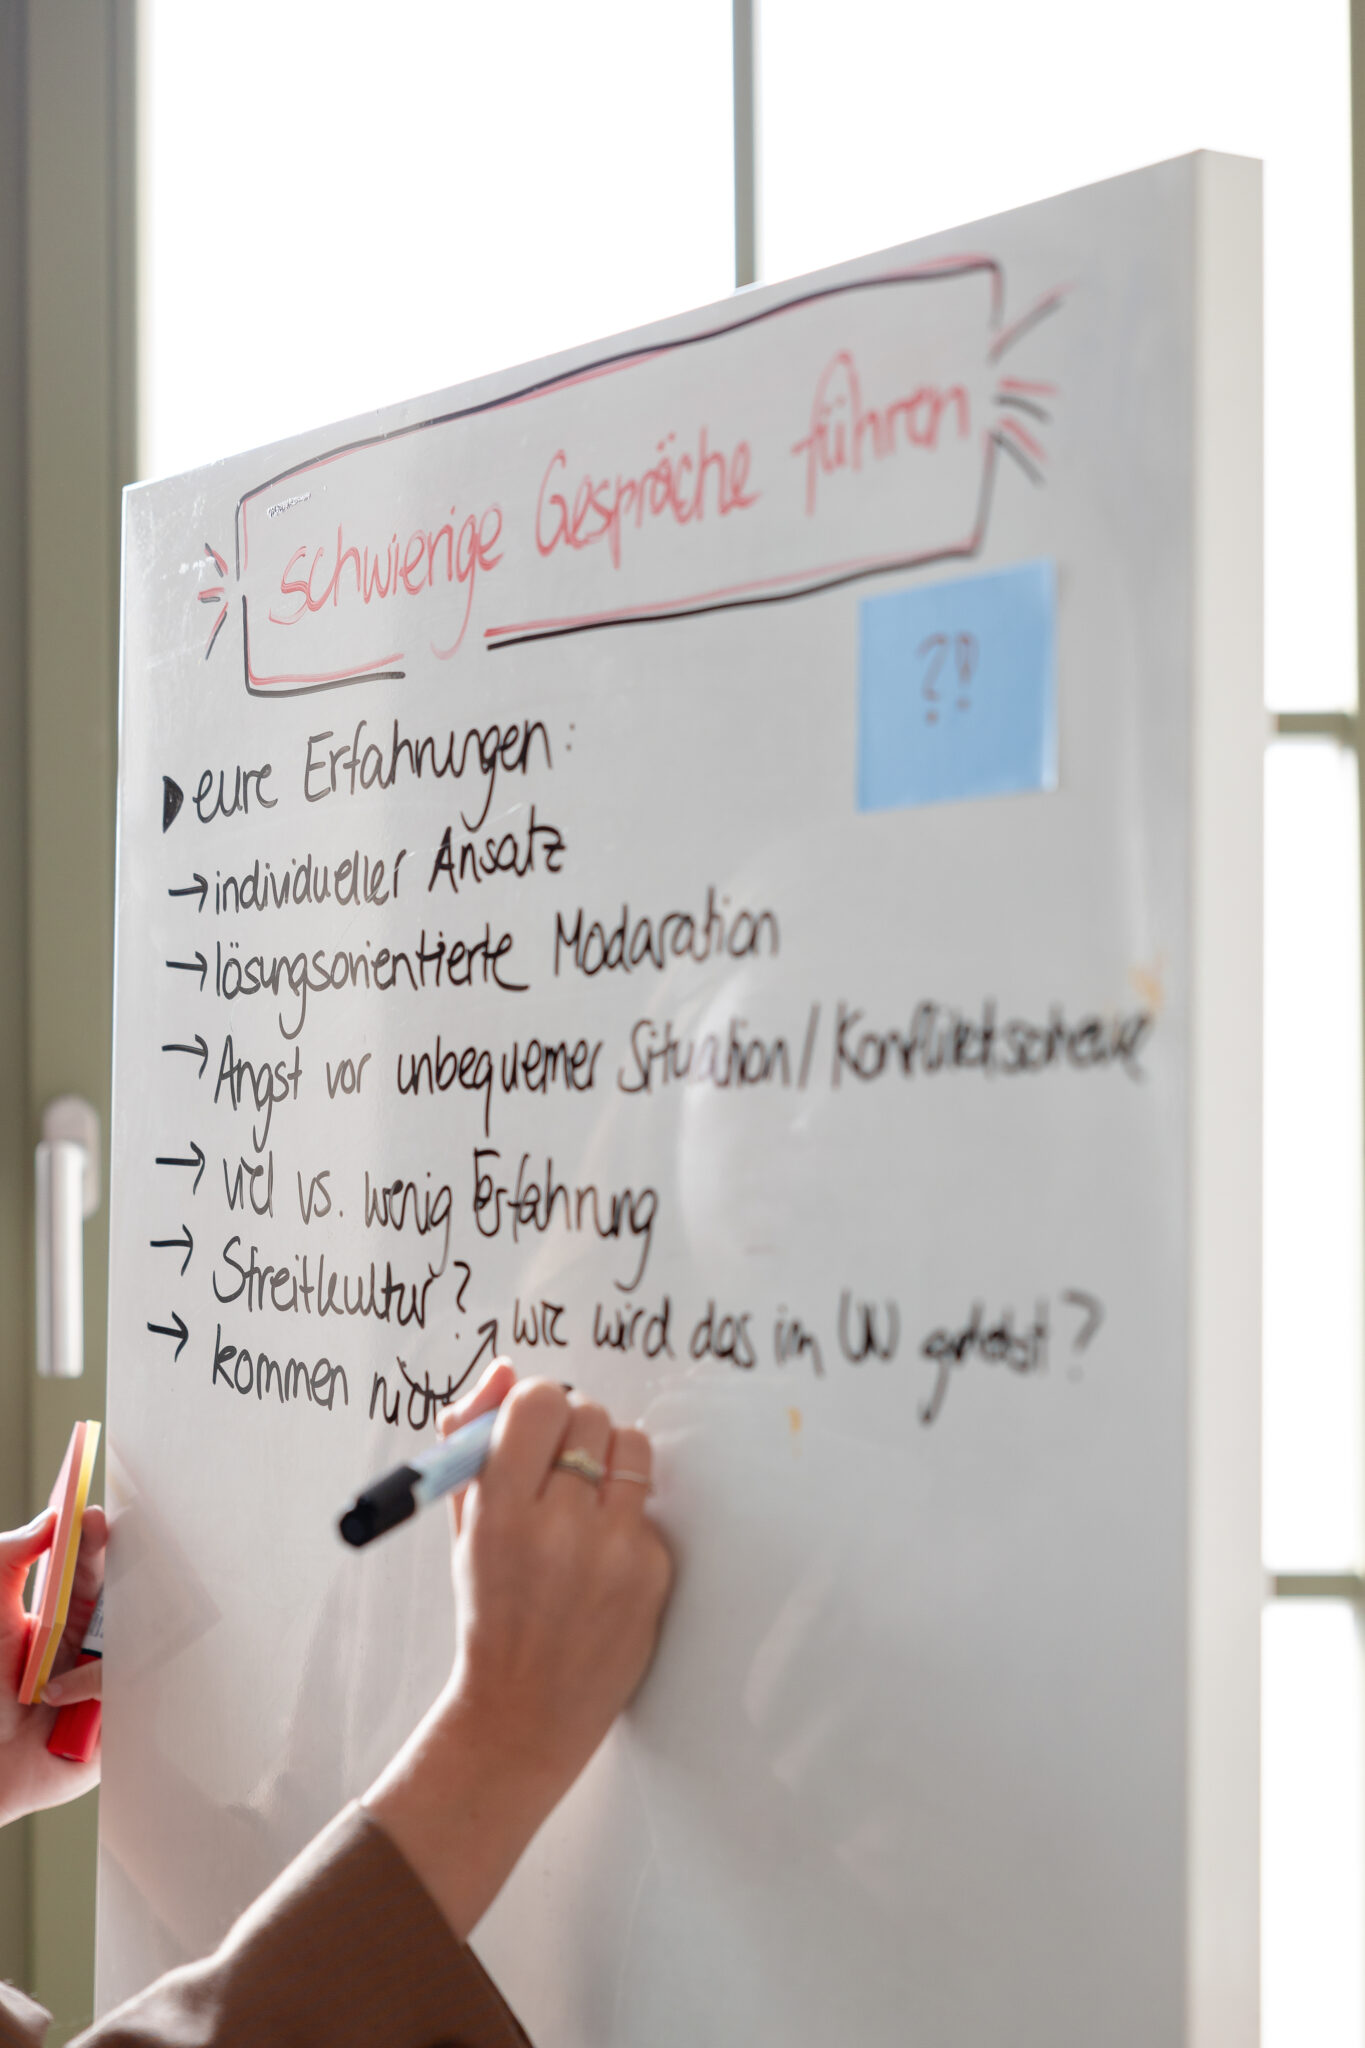 schwierige Gespräche führen
?!
eure Erfahrungen:
→ individueller Ansatz
→ lösungsorientierte Modaration
→ Angst vor unbequemer Situation / Konfliktscheue
→ viel vs. wenig Erfahrung
→ Streitkultur?
wie wird das im UN gelebt?
→ kommen nicht